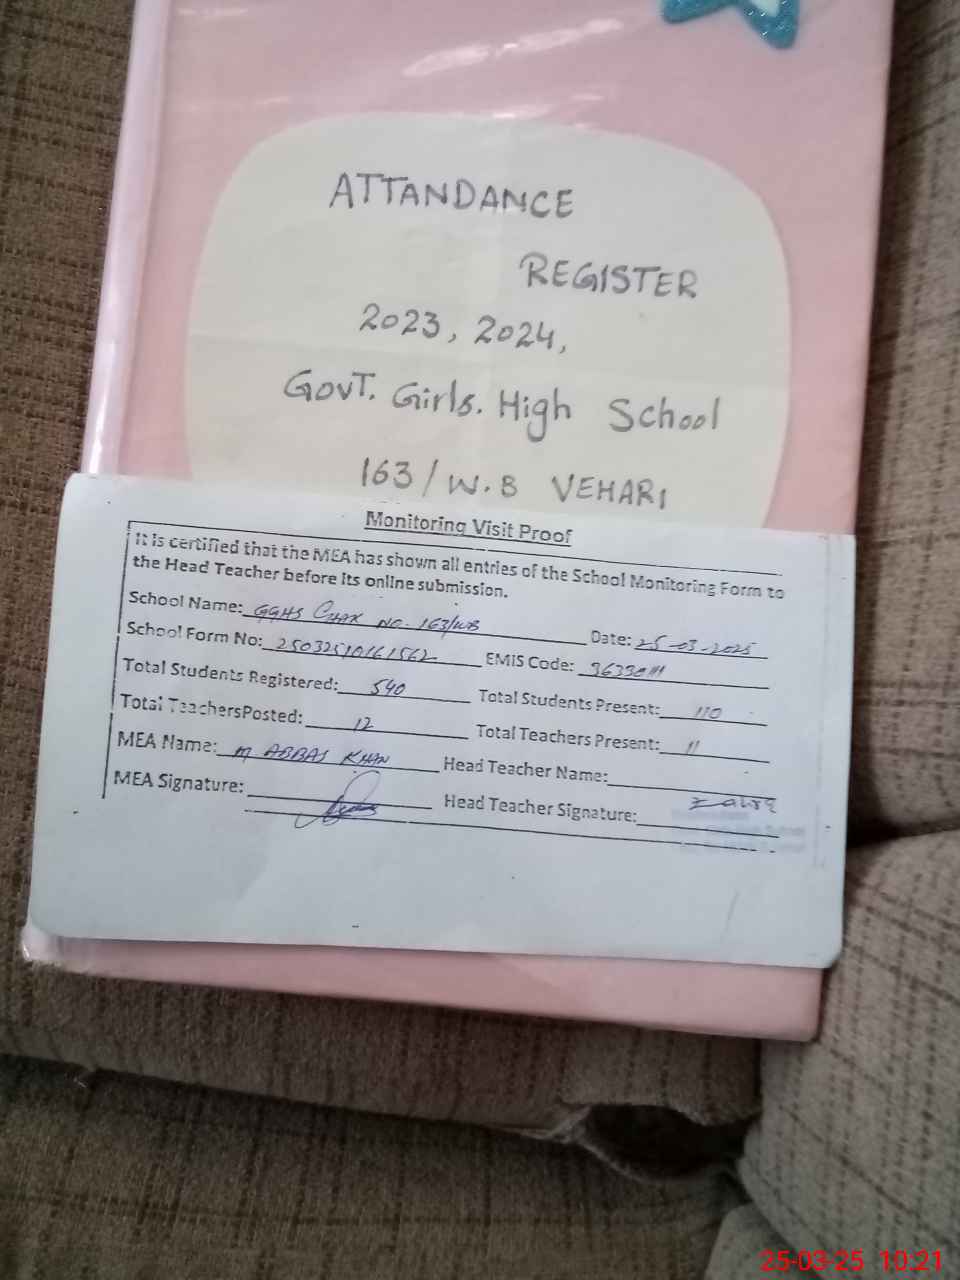 ATTANDANCE
REGISTER
2023, 2024,
GovT. Girls. High School
163/W.B VEHARI
Monitoring Visit Proof
It is certified that the MEA has shown all entries of the School Monitoring Form to
the Head Teacher before its online submission.
School Name: GGHS CHAK NO. 163/WB Date: 25-03-2025
School Form No: 25032510161562 EMIS Code:
Total Students Registered: 540 Total Students Present: 110
Total TeachersPosted: 12 Total Teachers Present: 11
MEA Name: M ABBAS KHAN Head Teacher Name:
MEA Signature: Head Teacher Signature:
25-03-25 10:21